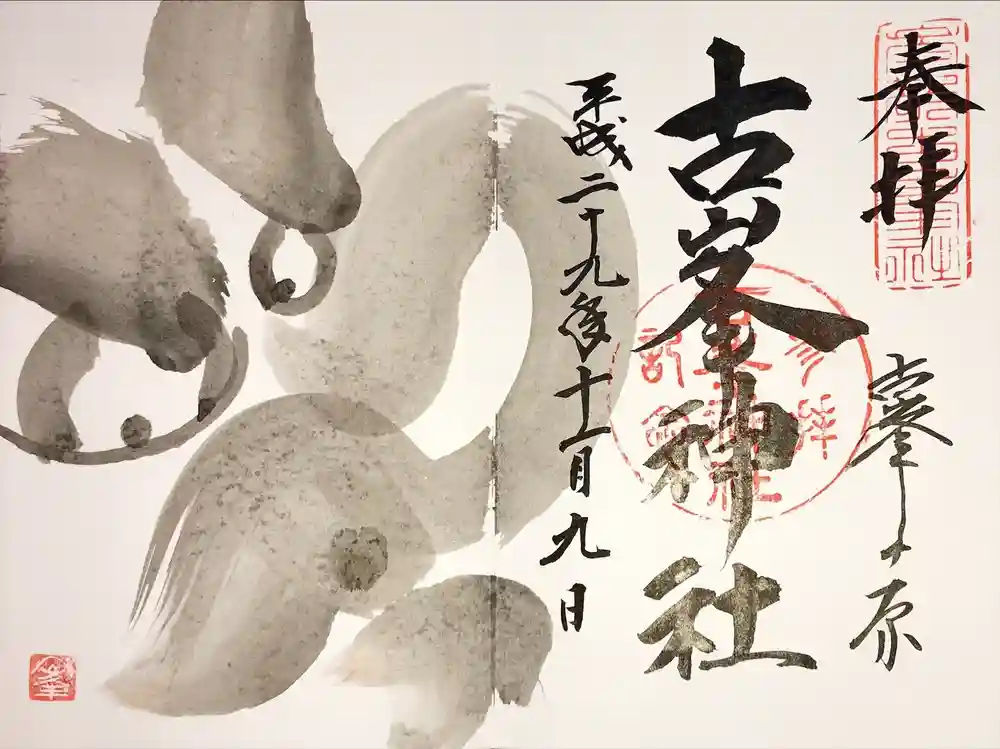 奉拝
古峯ヶ原
古峯神社
平成二十九年十一月九日
参拝
記念